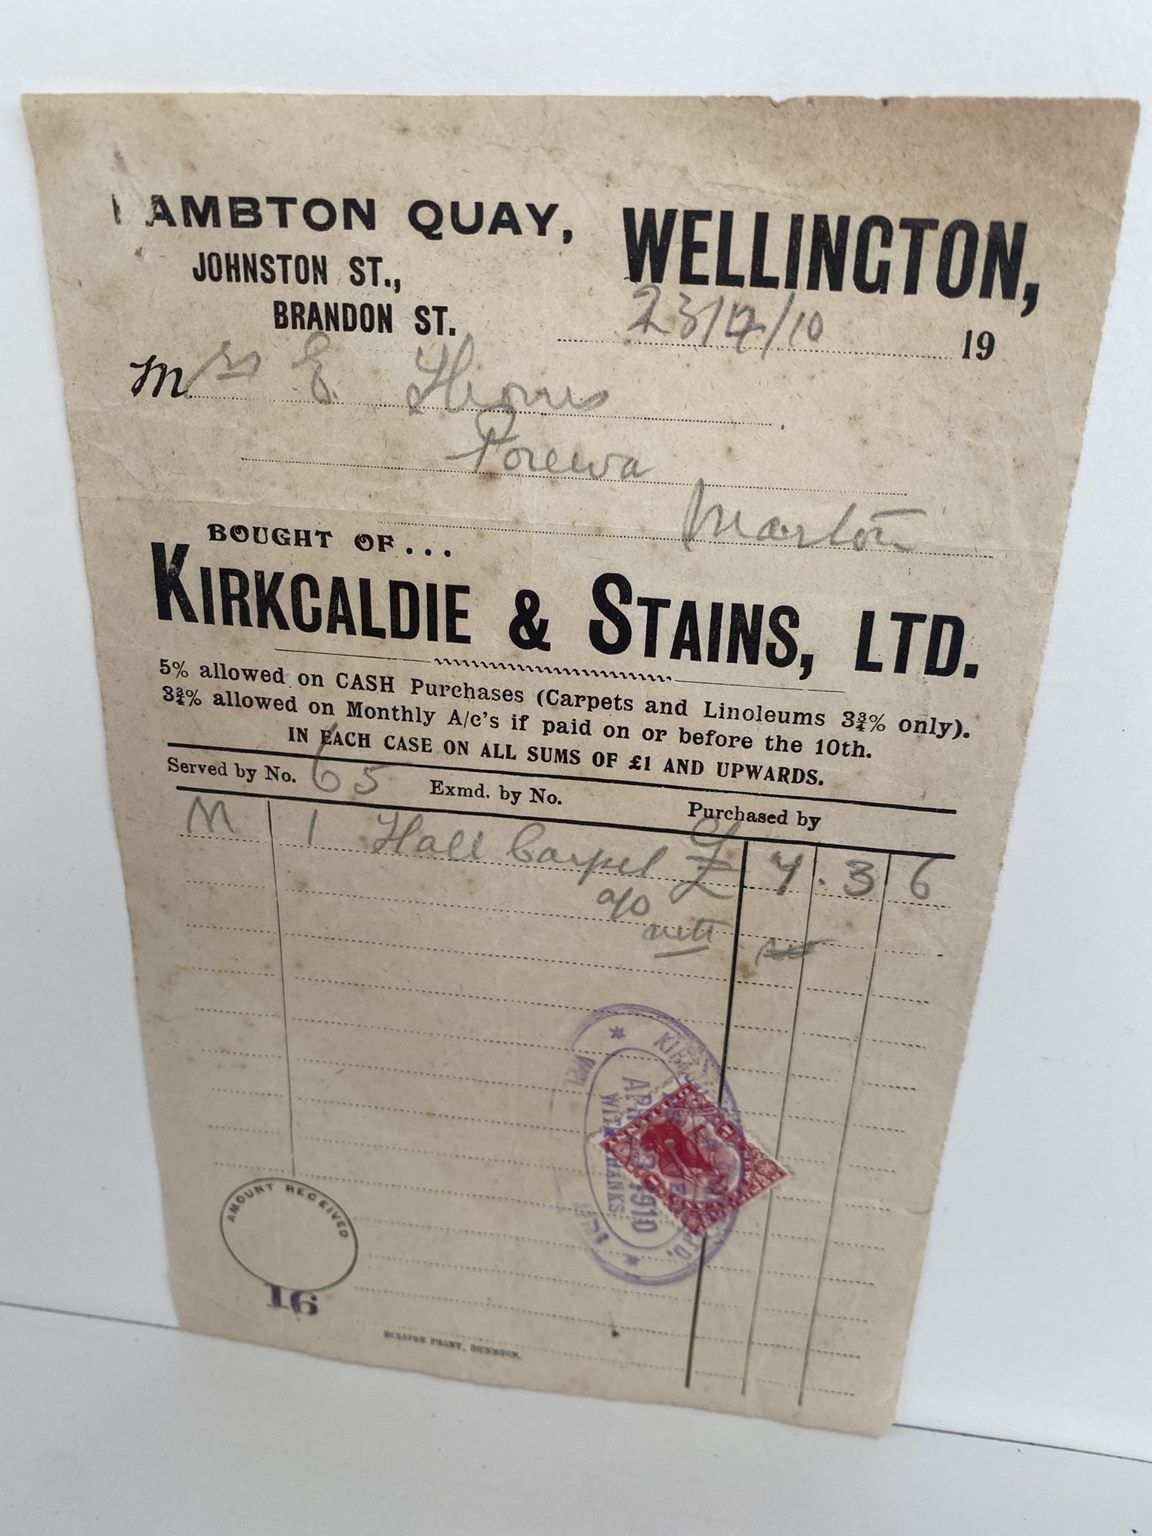 LAMBTON QUAY, WELLINGTON,
JOHNSTON ST.,
BRANDON ST.
23/ /10 19
Mrs E
Porewa
Marton
BOUGHT OF...
KIRKCALDIE & STAINS, LTD.
5% allowed on CASH Purchases (Carpets and Linoleums 3¾% only).
3¾% allowed on Monthly A/c's if paid on or before the 10th.
IN EACH CASE ON ALL SUMS OF £1 AND UPWARDS.
Served by No. 65 Exmd. by No. Purchased by
M 1 Hall Carpet £ 4 . 3 6
nett
APR 23 1910
WITH THANKS
LTD.
AMOUNT RECEIVED
16